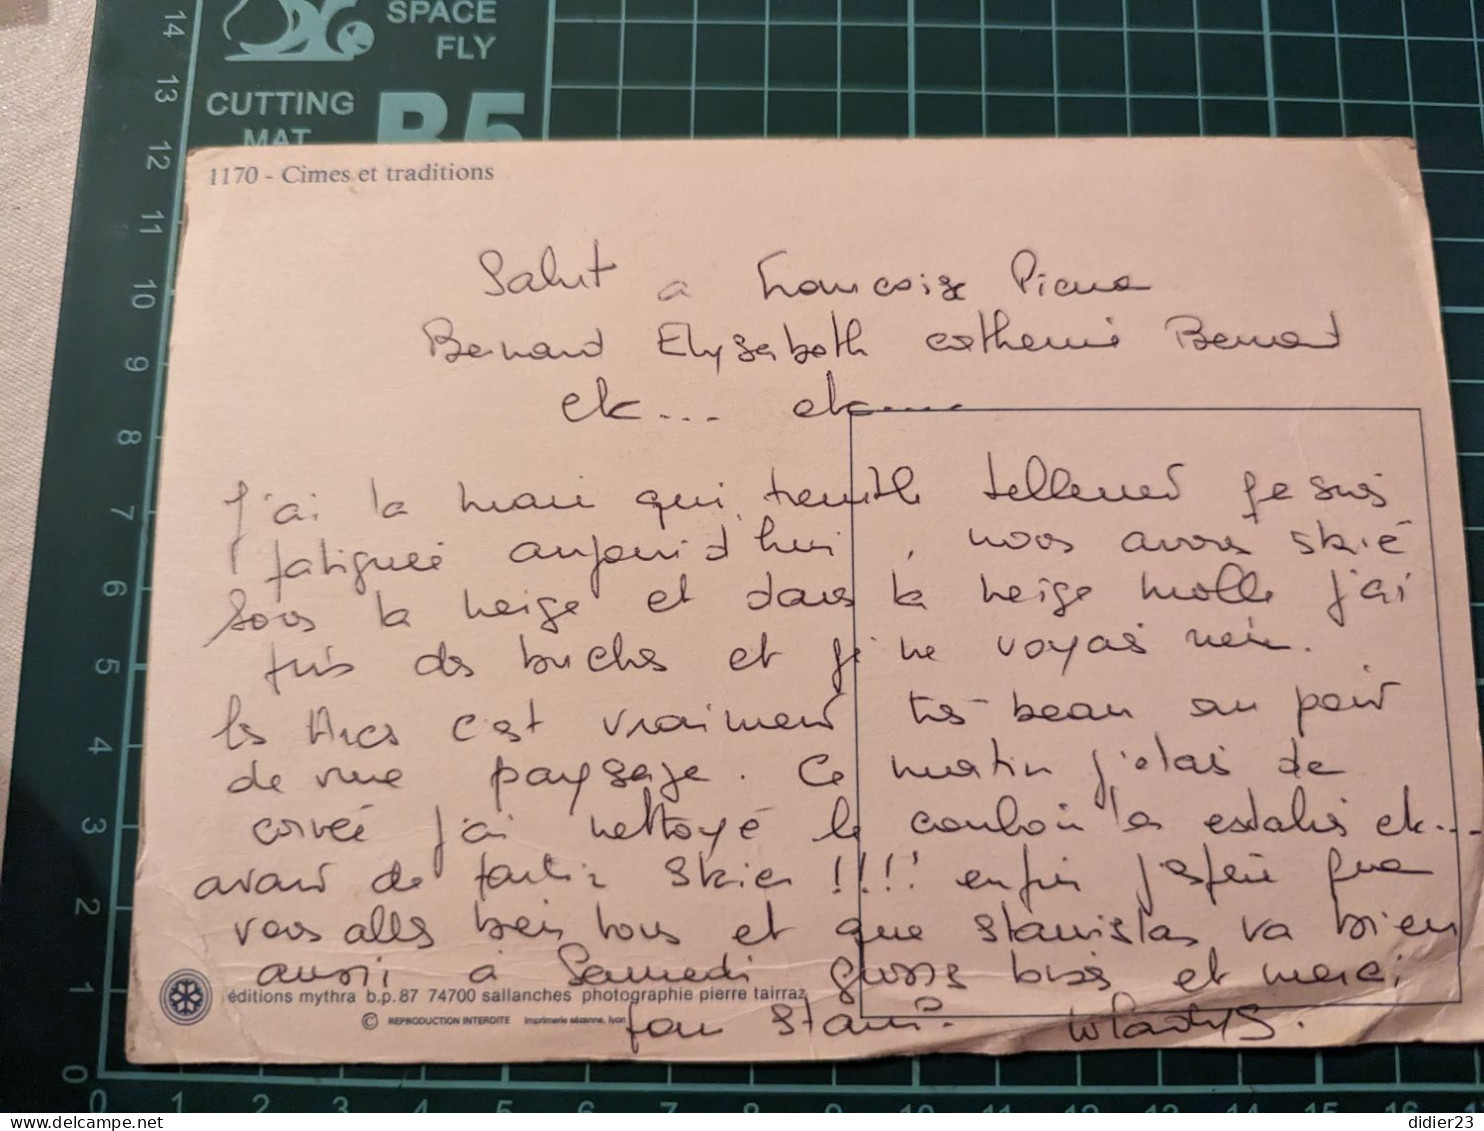 14 SPACE
FLY
13 CUTTING B5
MAT
12
11
10
9
8
7
6
5
4
3
2
1
0
0 1 2 3 4 5 6 7 8 9 10 11 12 13 14 15 16
1170 - Cimes et traditions
Salut a Francoise
Bernard Elysabeth catherine Bernard
etc... etc....
J'ai la main qui tremble tellement je suis
fatiguée aujourd'hui, nous avons skié
sous la neige et dans la neige molle j'ai
pris des buches et je ne voyais rien.
les Arcs c'est vraiment très beau au point
de vue paysage. Ce matin j'etais de
corvée j'ai nettoyé le couloir les escaliers etc...
avant de partir skier !!!! enfin j'espère que
vous allez bien tous et que stanislas va bien
aussi à Samedi grosses bises et merci
pour stani. Wladys.
éditions mythra b.p. 87 74700 sallanches photographie pierre tairraz
© REPRODUCTION INTERDITE imprimerie sézanne, lyon
didier23